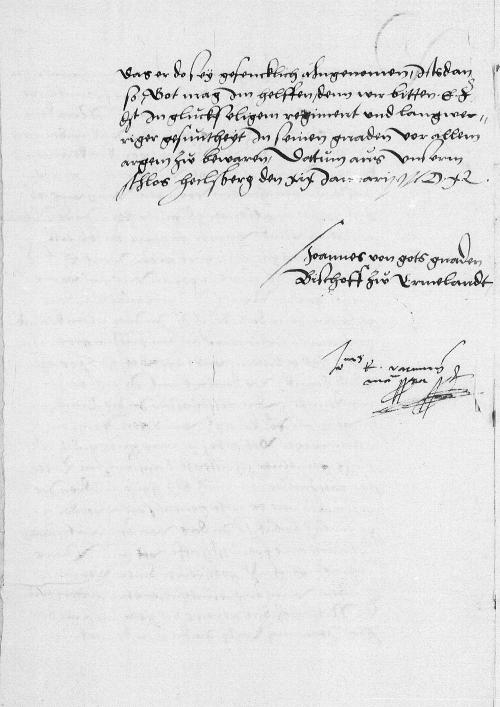 das er do sey gefencklich angenomen, Alsdan
so Got mag Im helffen, denn wir bitten. E. F.
Dt In gluckseligem regiment und langwer-
riger gesuntheyt In seinen gnaden vor allem
argem zw bewaren, Datum aus unserm
schlos heilsberg den xix Januarij M D XL
Joannes von gots gnaden
Bischoff zw Ermelandt
manu